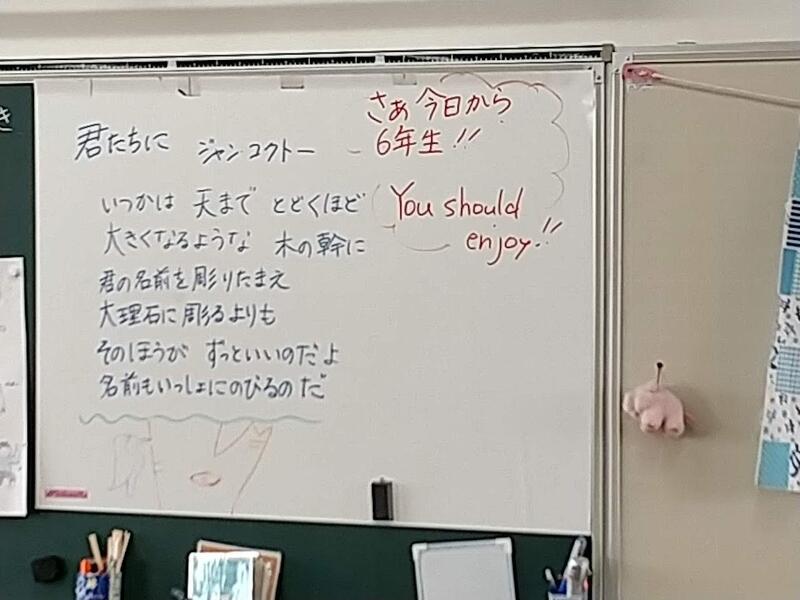 君たちに ジャン コクトー
いつかは 天まで とどくほど
大きくなるような 木の幹に
君の名前を彫りたまえ
大理石に彫るよりも
そのほうが ずっといいのだよ
名前もいっしょにのびるのだ
さぁ 今日から
6年生!!
You should
enjoy!!
き